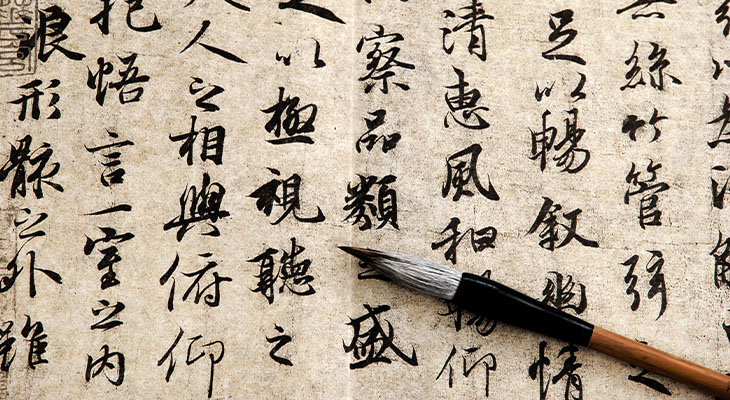 無絲竹管弦之
足以暢叙幽情
清惠風和暢仰
察品類之盛
以極視聽之
人之相與俯仰
抱悟言一室之內
浪形骸之外雖